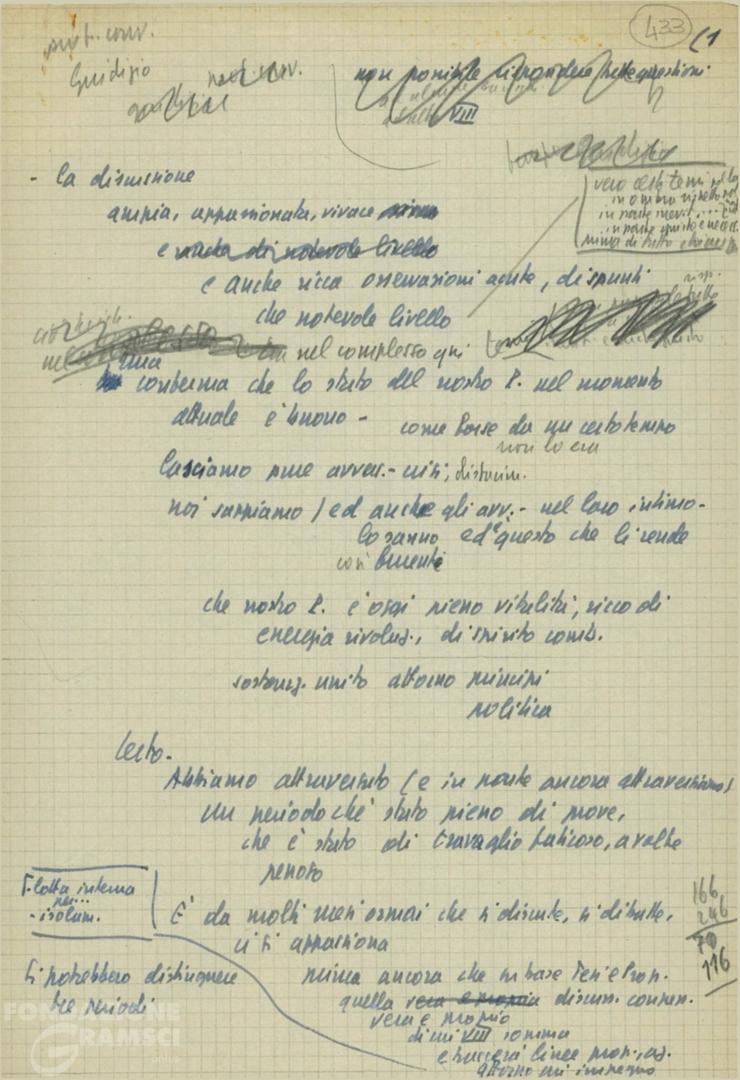 433
(1
Giudizio
non possibile rispondere tutte questioni
VIII
- la discussione
ampia, appassionata, vivace
e anche di notevole livello
e anche ricca osservazioni acute, di spunti
che notevole livello
vero certi temi
in ombra rispetto
in parte
in parte giusto e necess.
prima di tutto
nel complesso qui
una
conferma che lo stato del nostro P. nel momento
attuale è buono - come forse da un certo tempo
non lo era
lasciamo pure avvers. - crisi, disfacim.
noi sappiamo (ed anche gli avv. - nel loro intimo -
lo sanno ed è questo che li rende
così furenti
che nostro P. è oggi pieno vitalità, ricco di
energia rivoluz., di spirito comb.
sostanz. unito attorno principi
politica
Certo -
Abbiamo attraversato (e in parte ancora attraversiamo)
un periodo che è stato pieno di prove,
che è stato di travaglio faticoso, a volte
penoso
- lotta interna
- isolam.
È da molti mesi ormai che si discute, si dibatte,
ci si appassiona
166
246
70
116
Si potrebbero distinguere
tre periodi
prima ancora che su base Tesi e Progr.
quella vera e propria discuss. congr.
vera e propria
di cui VIII somma
e traccerà linee
attorno cui impegno
FONDAZIONE
GRAMSCI